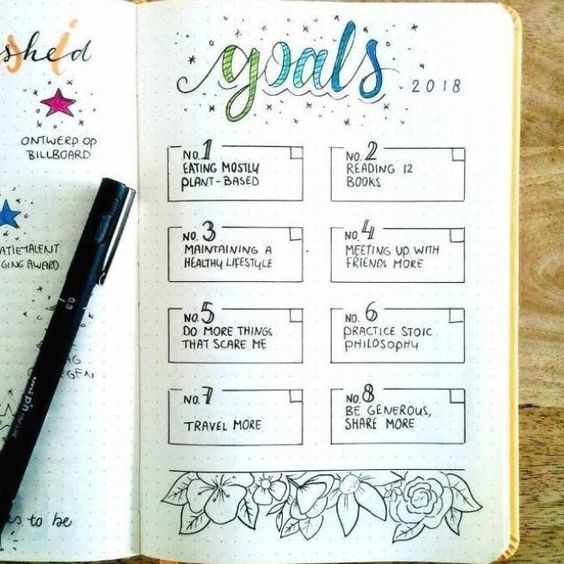 shed
ONTWERP OP
BILLBOARD
goals
2018
NO. 1
EATING MOSTLY
PLANT-BASED
NO. 2
READING 12
BOOKS
NO. 3
MAINTAINING A
HEALTHY LIFESTYLE
NO. 4
MEETING UP WITH
FRIENDS MORE
NO. 5
DO MORE THINGS
THAT SCARE ME
NO. 6
PRACTICE STOIC
PHILOSOPHY
NO. 7
TRAVEL MORE
NO. 8
BE GENEROUS,
SHARE MORE
ATIETALENT
GING AWARD
0.3
uni pin
to be